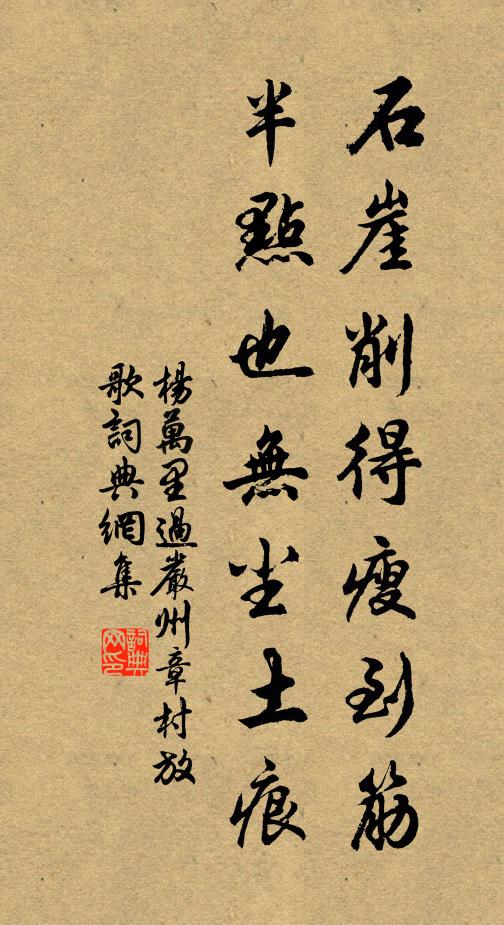 石崖削得瘦到筋
半點也無尘土痕
楊萬里過嚴州章村放
歌詞典網集
詞典网印